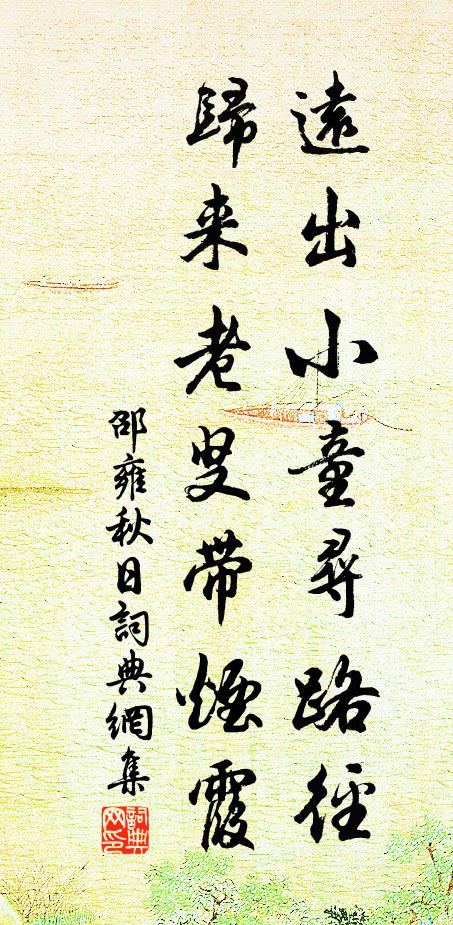 遠出小童尋路徑
歸来老叟帶煙霞
邵雍秋日詞典網集
詞典網印